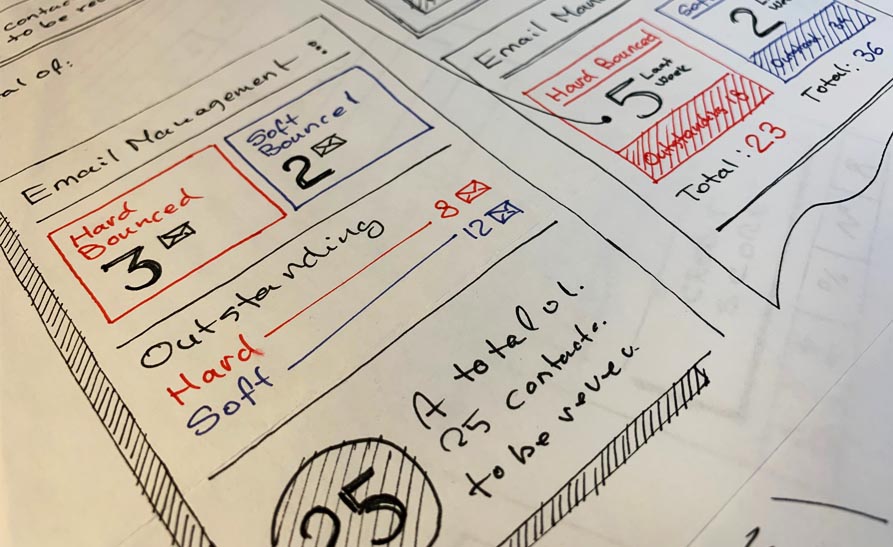 contac
to be re
al of:
Email Management
Hard
Bounced
3
Soft
Bounced
2
Outstanding
Hard 8
Soft 12
25
A total of
25 contacts
to be
Email Man
Hard Bounced
5 Last
Week
Outstanding 18
Total: 23
Sof
2
Total: 36